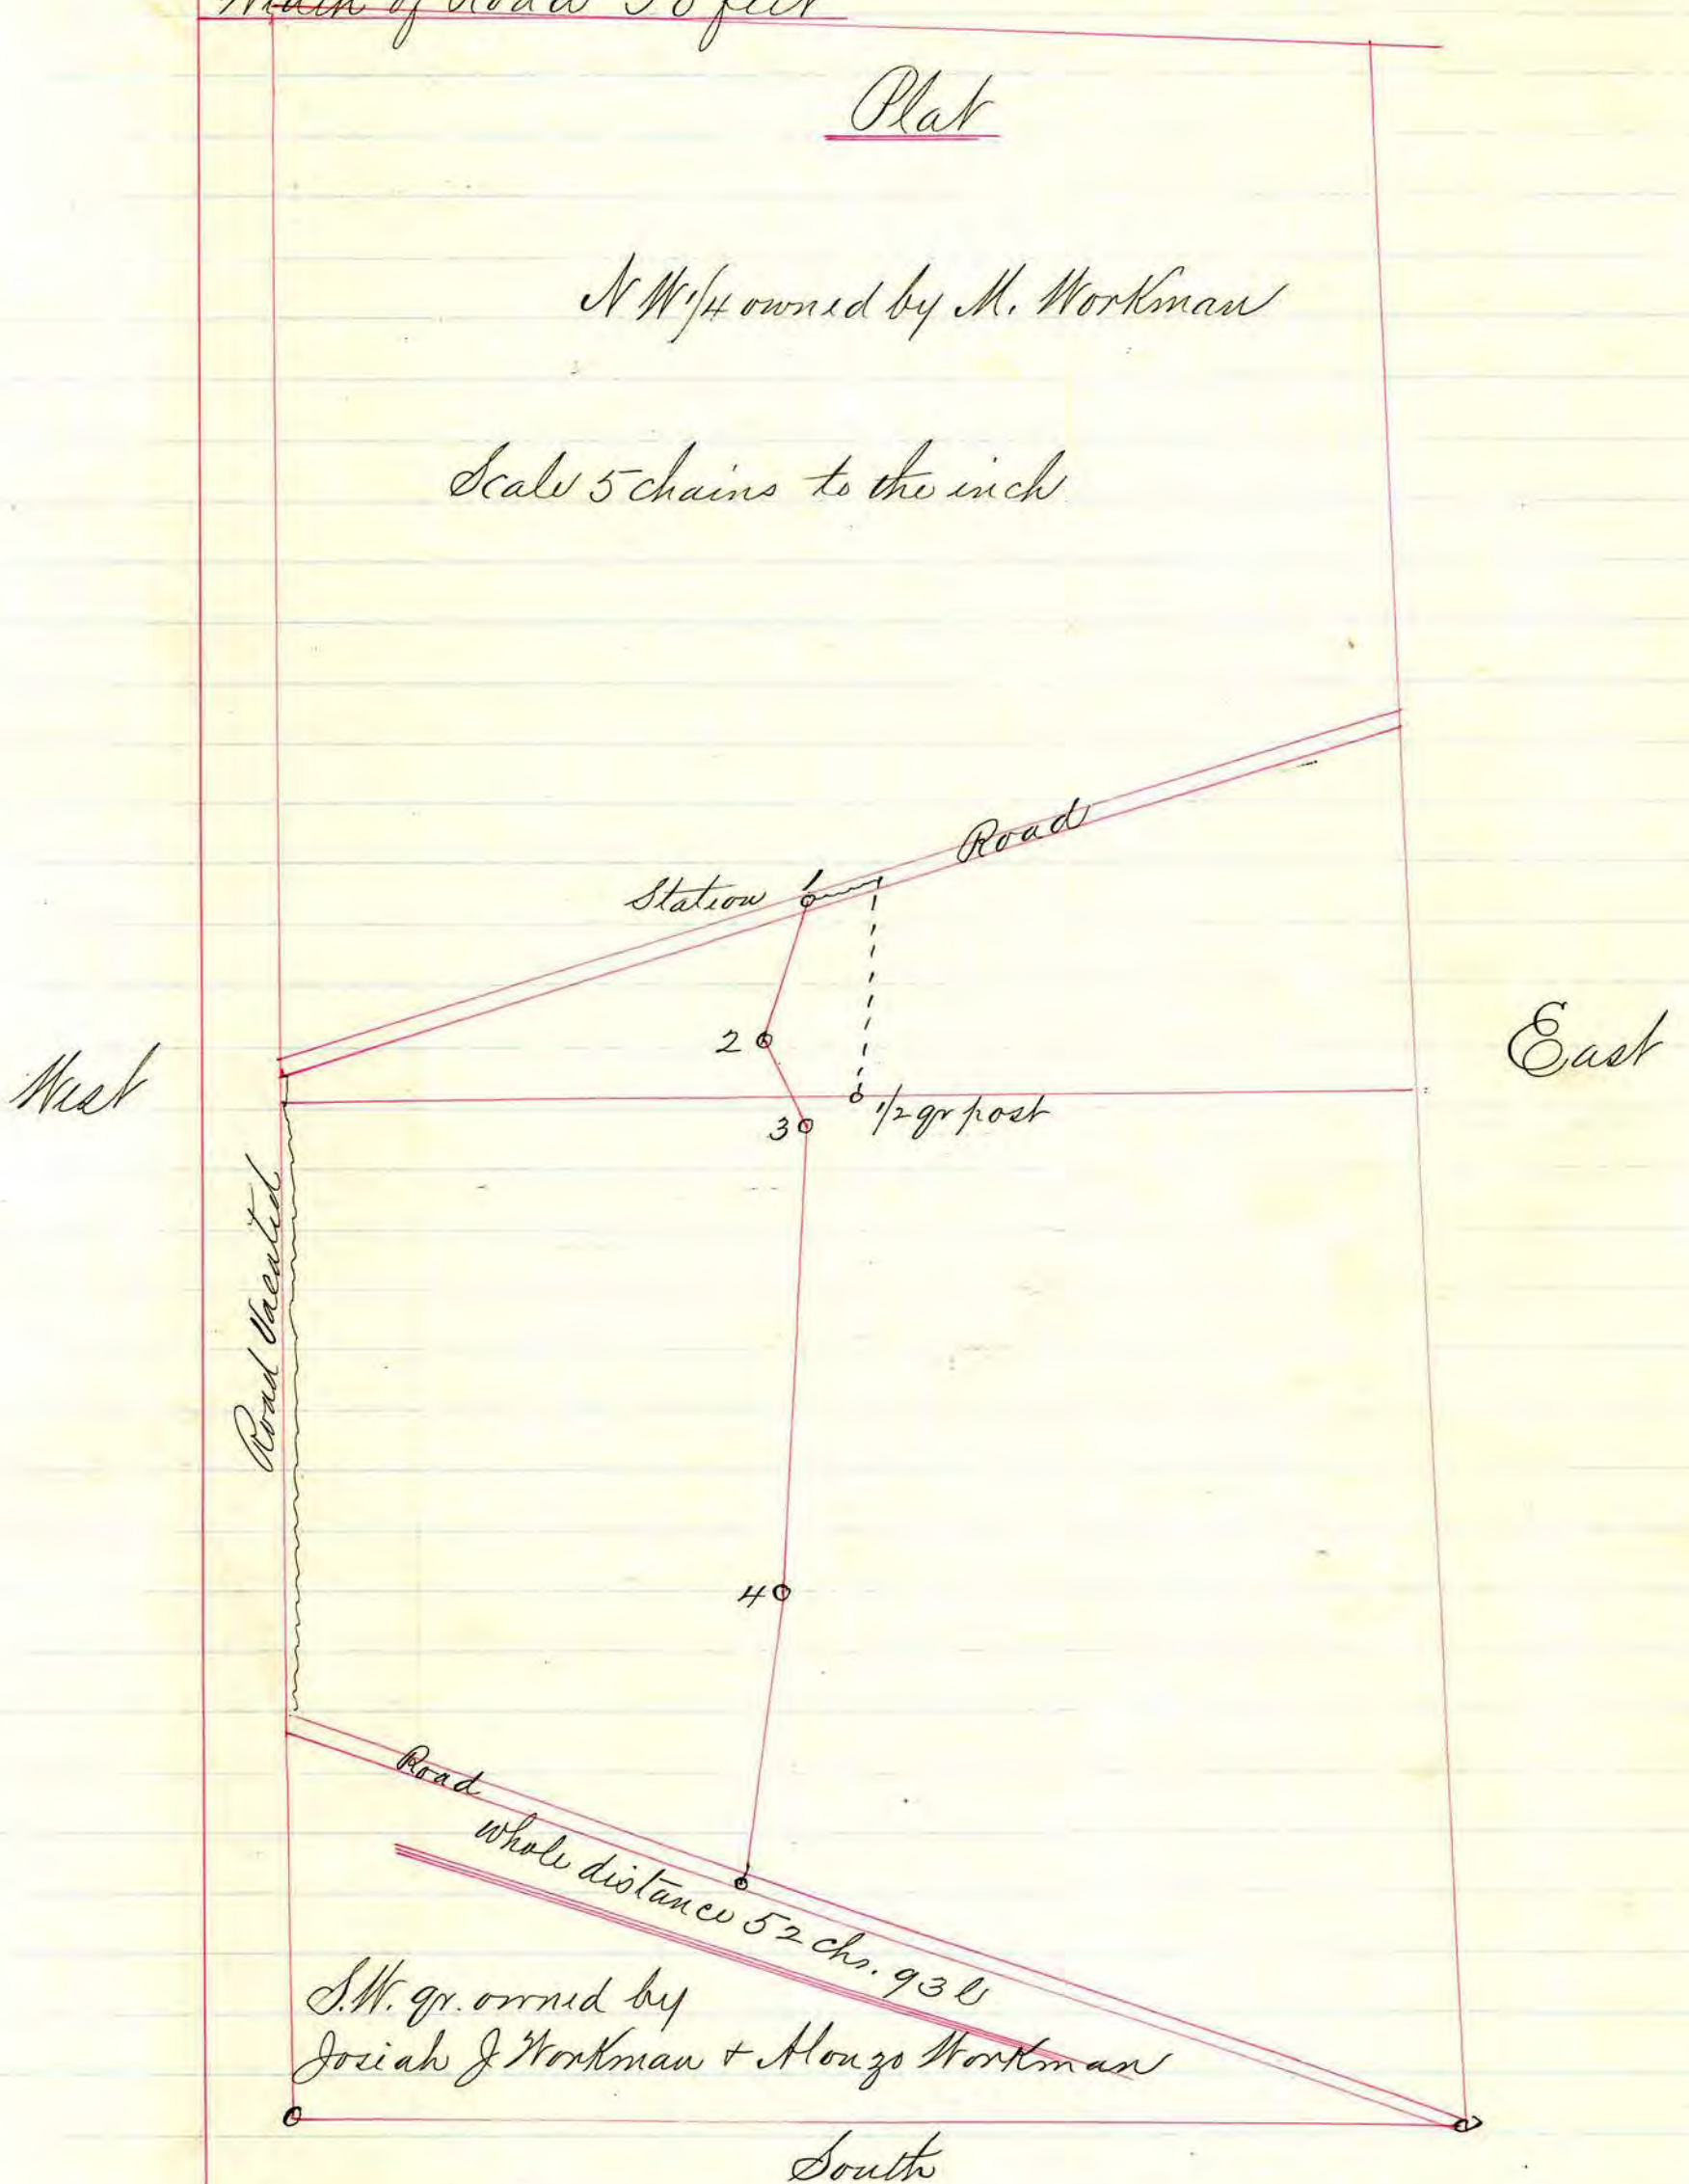 Width of Road 30 feet
Plat
N W 1/4 owned by M. Workman
Scale 5 chains to the inch
Road
Station 1
2
West
East
1/2 qr post
3
Road Vacated
4
Road
whole distance 52 chs. 93 l
S.W. qr. owned by
Josiah J Workman & Alonzo Workman
South